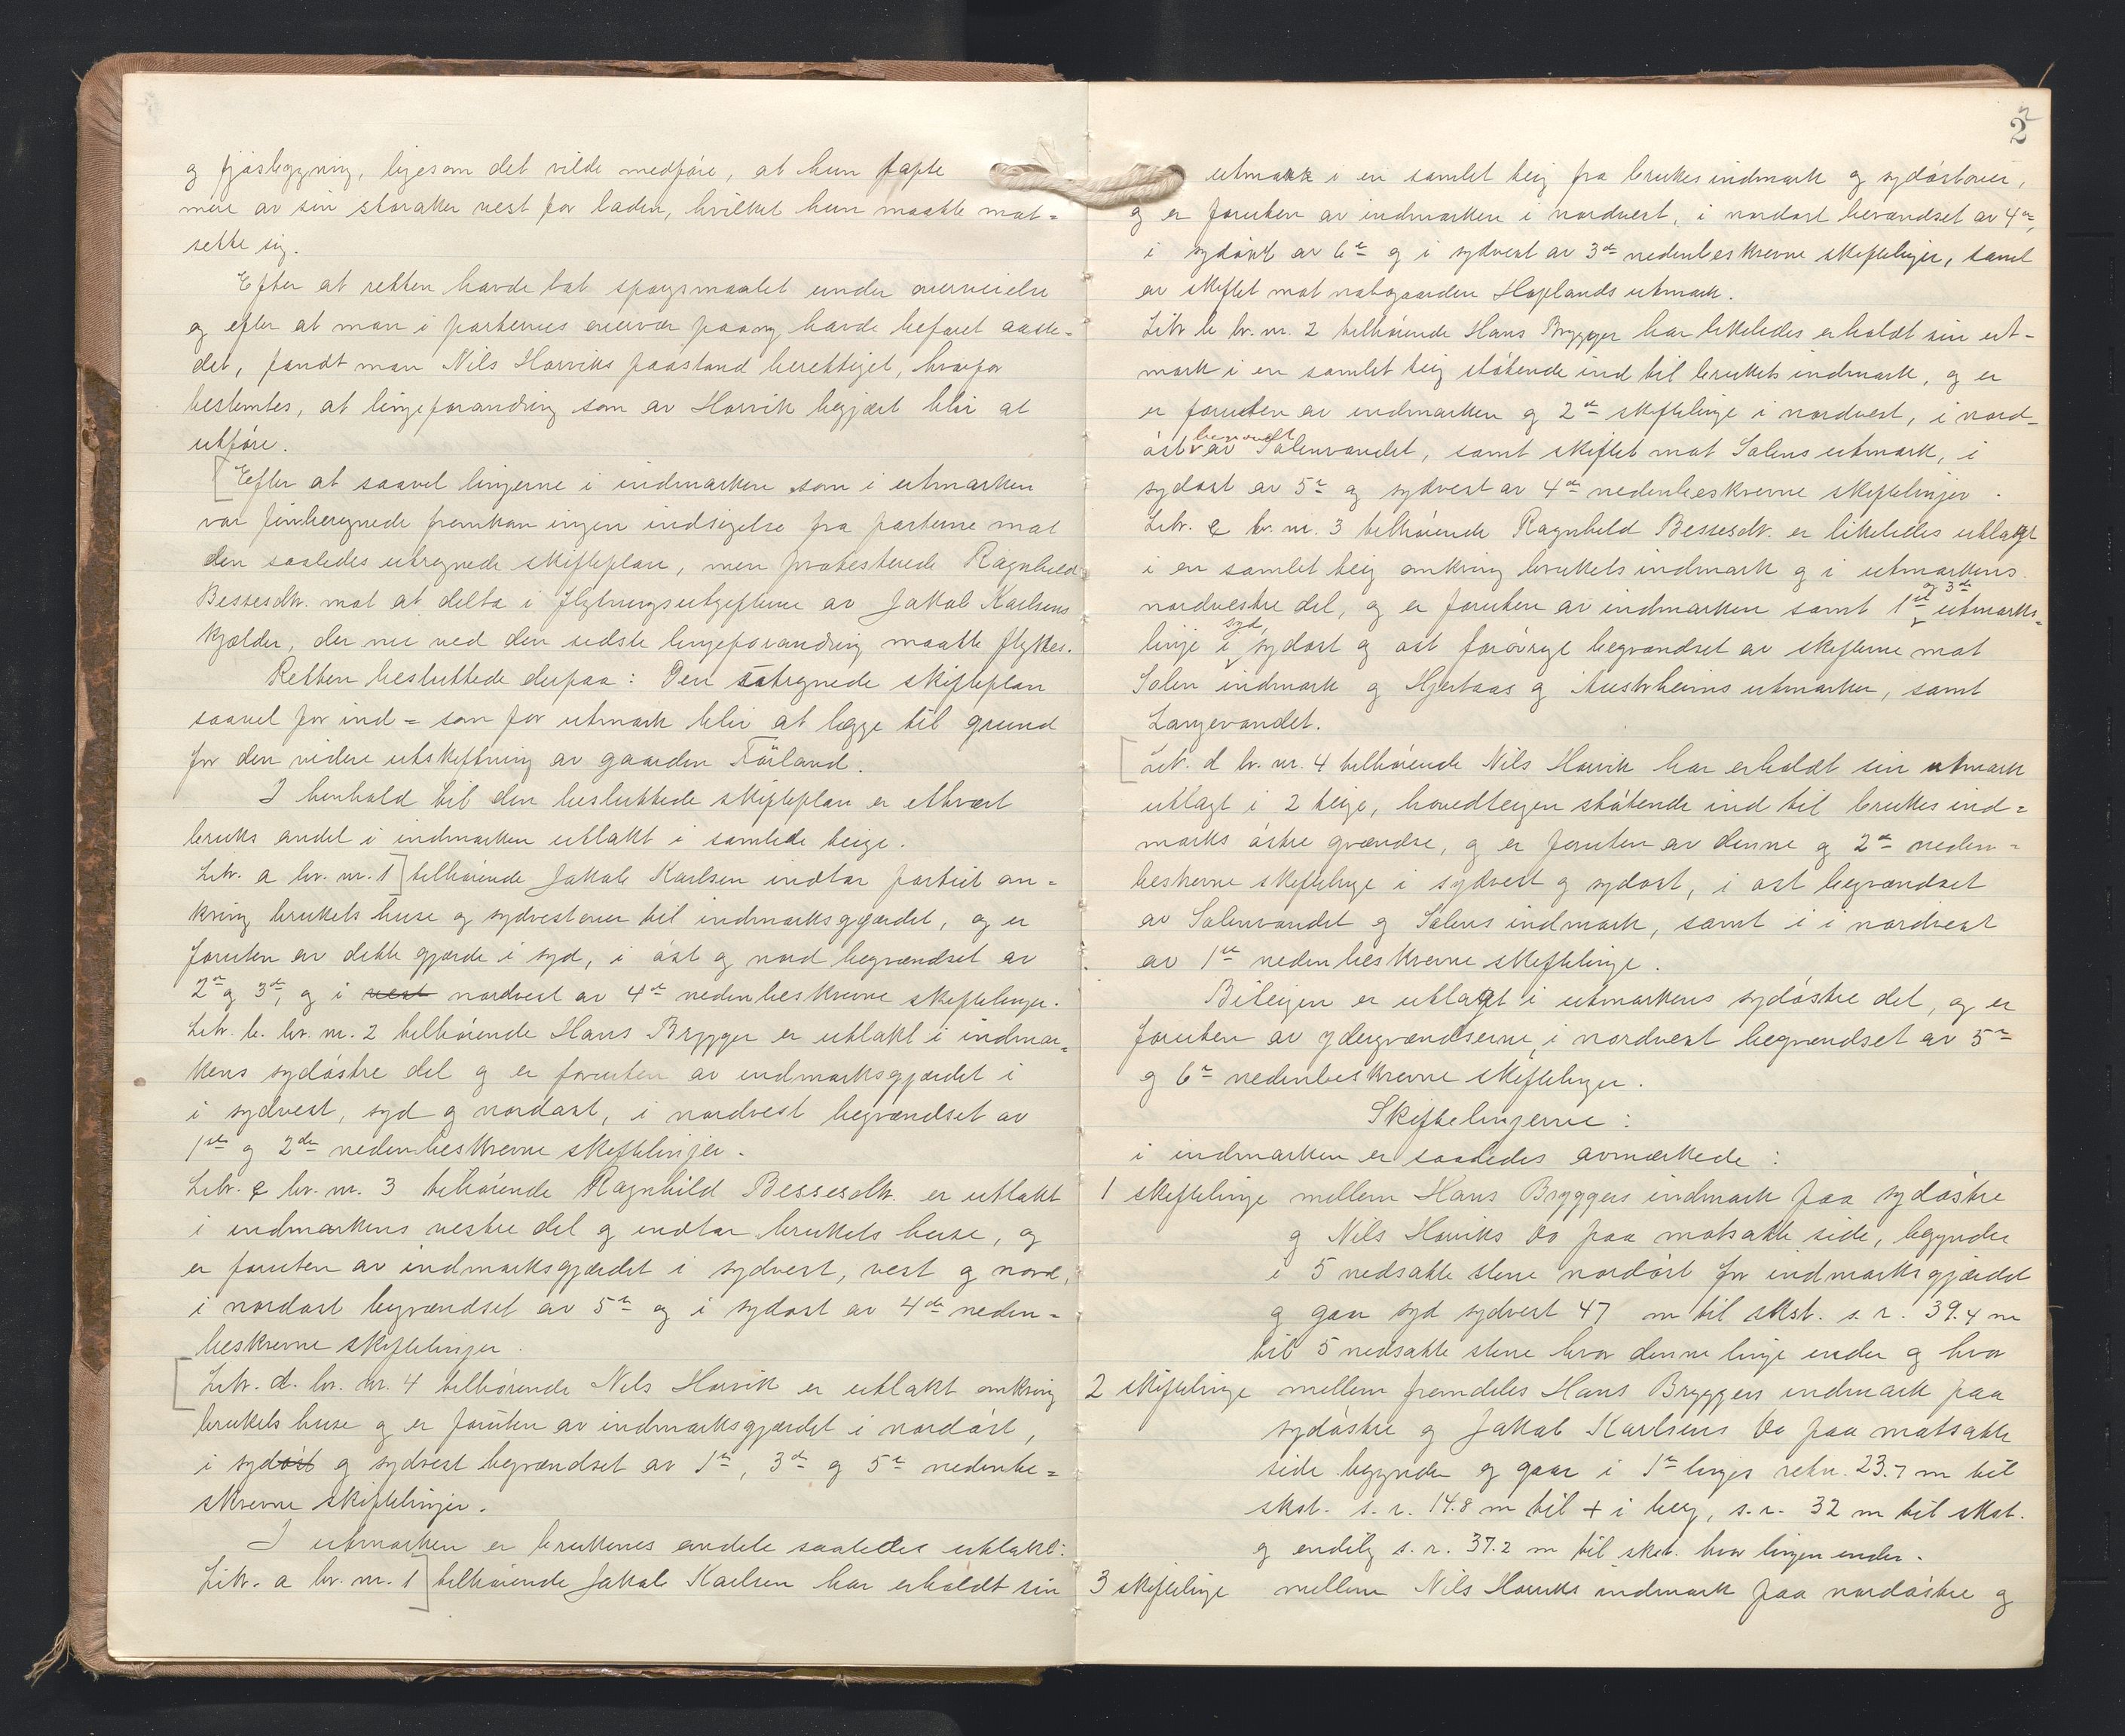 og fjøsbygning, ligesom det vilde medføre, at hun tapte
mere av sin storaker vest for laden, hvilket hun maatte mot=
sette sig.
Efter at retten havde tat spørgsmaalet under overveielse
og efter at man i parternes overvær paany havde befaret aaste=
det, fandt man Nils Hovviks paastand berettiget, hvorfor
bestemtes, at linjeforandring som av Hovvik begjært blir at
utføre.
Efter at saavel linjerne i indmarken som i utmarken
var finberegnede fremkom ingen indsigelse fra parterne mot
den saaledes utregnede skifteplan, men protesterede Ragnhild
Bessesdtr. mot at delta i flytningsutgifterne av Jakob Karlsens
kjælder, der nu ved den sidste linjeforandring maatte flyttes.
Retten besluttede derpaa: Den utregnede skifteplan
saavel for ind= som for utmark blir at lægge til grund
for den videre utskiftning av gaarden Förland.
I henhold til den besluttede skifteplan er ethvert
bruks andel i indmarken utlakt i samlede teige.
Litr. a br. nr. 1 tilhørende Jakob Karlsen indtar partiet om=
kring brukets huse og sydvestover til indmarksgjærdet, og er
foruten av dette gjærde i syd, i øst og nord begrændset av
2den og 3die, og i vest nordvest av 4de nedenbeskrevne skiftelinjer.
Litr. b. br. nr. 2 tilhørende Hans Brygger er utlakt i indmar=
kens sydøstre del og er foruten av indmarksgjærdet i
i sydvest, syd og nordøst, i nordvest begrændset av
1ste og 2den nedenbeskrevne skiftelinjer.
Litr. c br. nr. 3 tilhørende Ragnhild Bessesdtr. er utlakt
i indmarkens vestre del og indtar brukets huse, og
er foruten av indmarksgjærdet i sydvest, vest og nord,
i nordøst begrændset av 5te og i sydøst av 4de neden=
beskrevne skiftelinjer.
Litr. d. br. nr. 4 tilhørende Nils Hovvik er utlakt omkring
brukets huse og er foruten av indmarksgjærdet i nordøst,
i sydøst og sydvest begrændset av 1ste, 3die og 5te nedenbe=
skrevne skiftelinjer.
I utmarken er brukenes andele saaledes utlakt:
Litr. a br. nr. 1 tilhørende Jakob Karlsen har erholdt sin
2
utmark i en samlet teig fra brukes indmark og sydøstover,
og er foruten av indmarken i nordvest, i nordøst begrændset av 4de,
i sydøst av 6te og i sydvest av 3die nedenbeskrevne skiftelinjer, samt
av skiftet mot nabogaarden Hoplands utmark.
Litr b br. nr. 2 tilhørende Hans Brygger har likeledes erholdt sin ut=
mark i en samlet teig støtende ind til brukets indmark, og er
er foruten av indmarken og 2den skiftelinje i nordvest, i nord=
øst begrændset av Solenvandet, samt skiftet mot Solens utmark, i
sydøst av 5te og sydvest av 4de nedenbeskrevne skiftelinjer.
Litr. c br. nr. 3 tilhørende Ragnhild Bessesdtr. er likeledes utlagt
i en samlet teig omkring brukets indmark og i utmarkens
nordvestre del, og er foruten av indmarken samt 1ste og 3die utmarks=
linje i syd, sydøst og øst forøvrig begrændset av skifterne mot
Solen indmark og Hjertaas og Austrheims utmarker, samt
Langevandet.
Litr. d br. nr. 4 tilhørende Nils Hovvik har erholdt sin utmark
utlagt i 2 teige, hovedteigen støtende ind til brukes ind=
marks østre grændse, og er foruten av denne og 2den neden=
beskrevne skiftelinje i sydvest og sydøst, i øst begrændset
av Solenvandet og Solens indmark, samt i i nordvest
av 1ste nedenbeskrevne skiftelinje.
Biteigen er utlagt i utmarkens sydøstre del, og er
foruten av ydergrændserne, i nordvest begrændset av 5te
og 6te nedenbeskrevne skiftelinjer.
Skiftelinjerne:
i indmarken er saaledes avmærkede:
1 skiftelinje mellem Hans Bryggers indmark paa sydøstre
og Nils Hovviks do paa motsatte side, begynder
i 5 nedsatte stene nordøst for indmarksgjærdet
og gaar syd sydvest 47 m til skst. s. r. 39.4 m
til 5 nedsatte stene hvor denne linje ender og hvor
2 skiftelinje mellem fremdeles Hans Bryggers indmark paa
sydøstre og Jakob Karlsens do paa motsatte
side begynder og gaar i 1ste linjes retn. 23.7 m til
skst. s. r. 14.8 m til + i berg, s. r. 32 m til skst.
og endelig s. r. 37.2 m til skst. hvor linjen ender.
3 skiftelinje mellem Nils Hovviks indmark paa nordøstre og